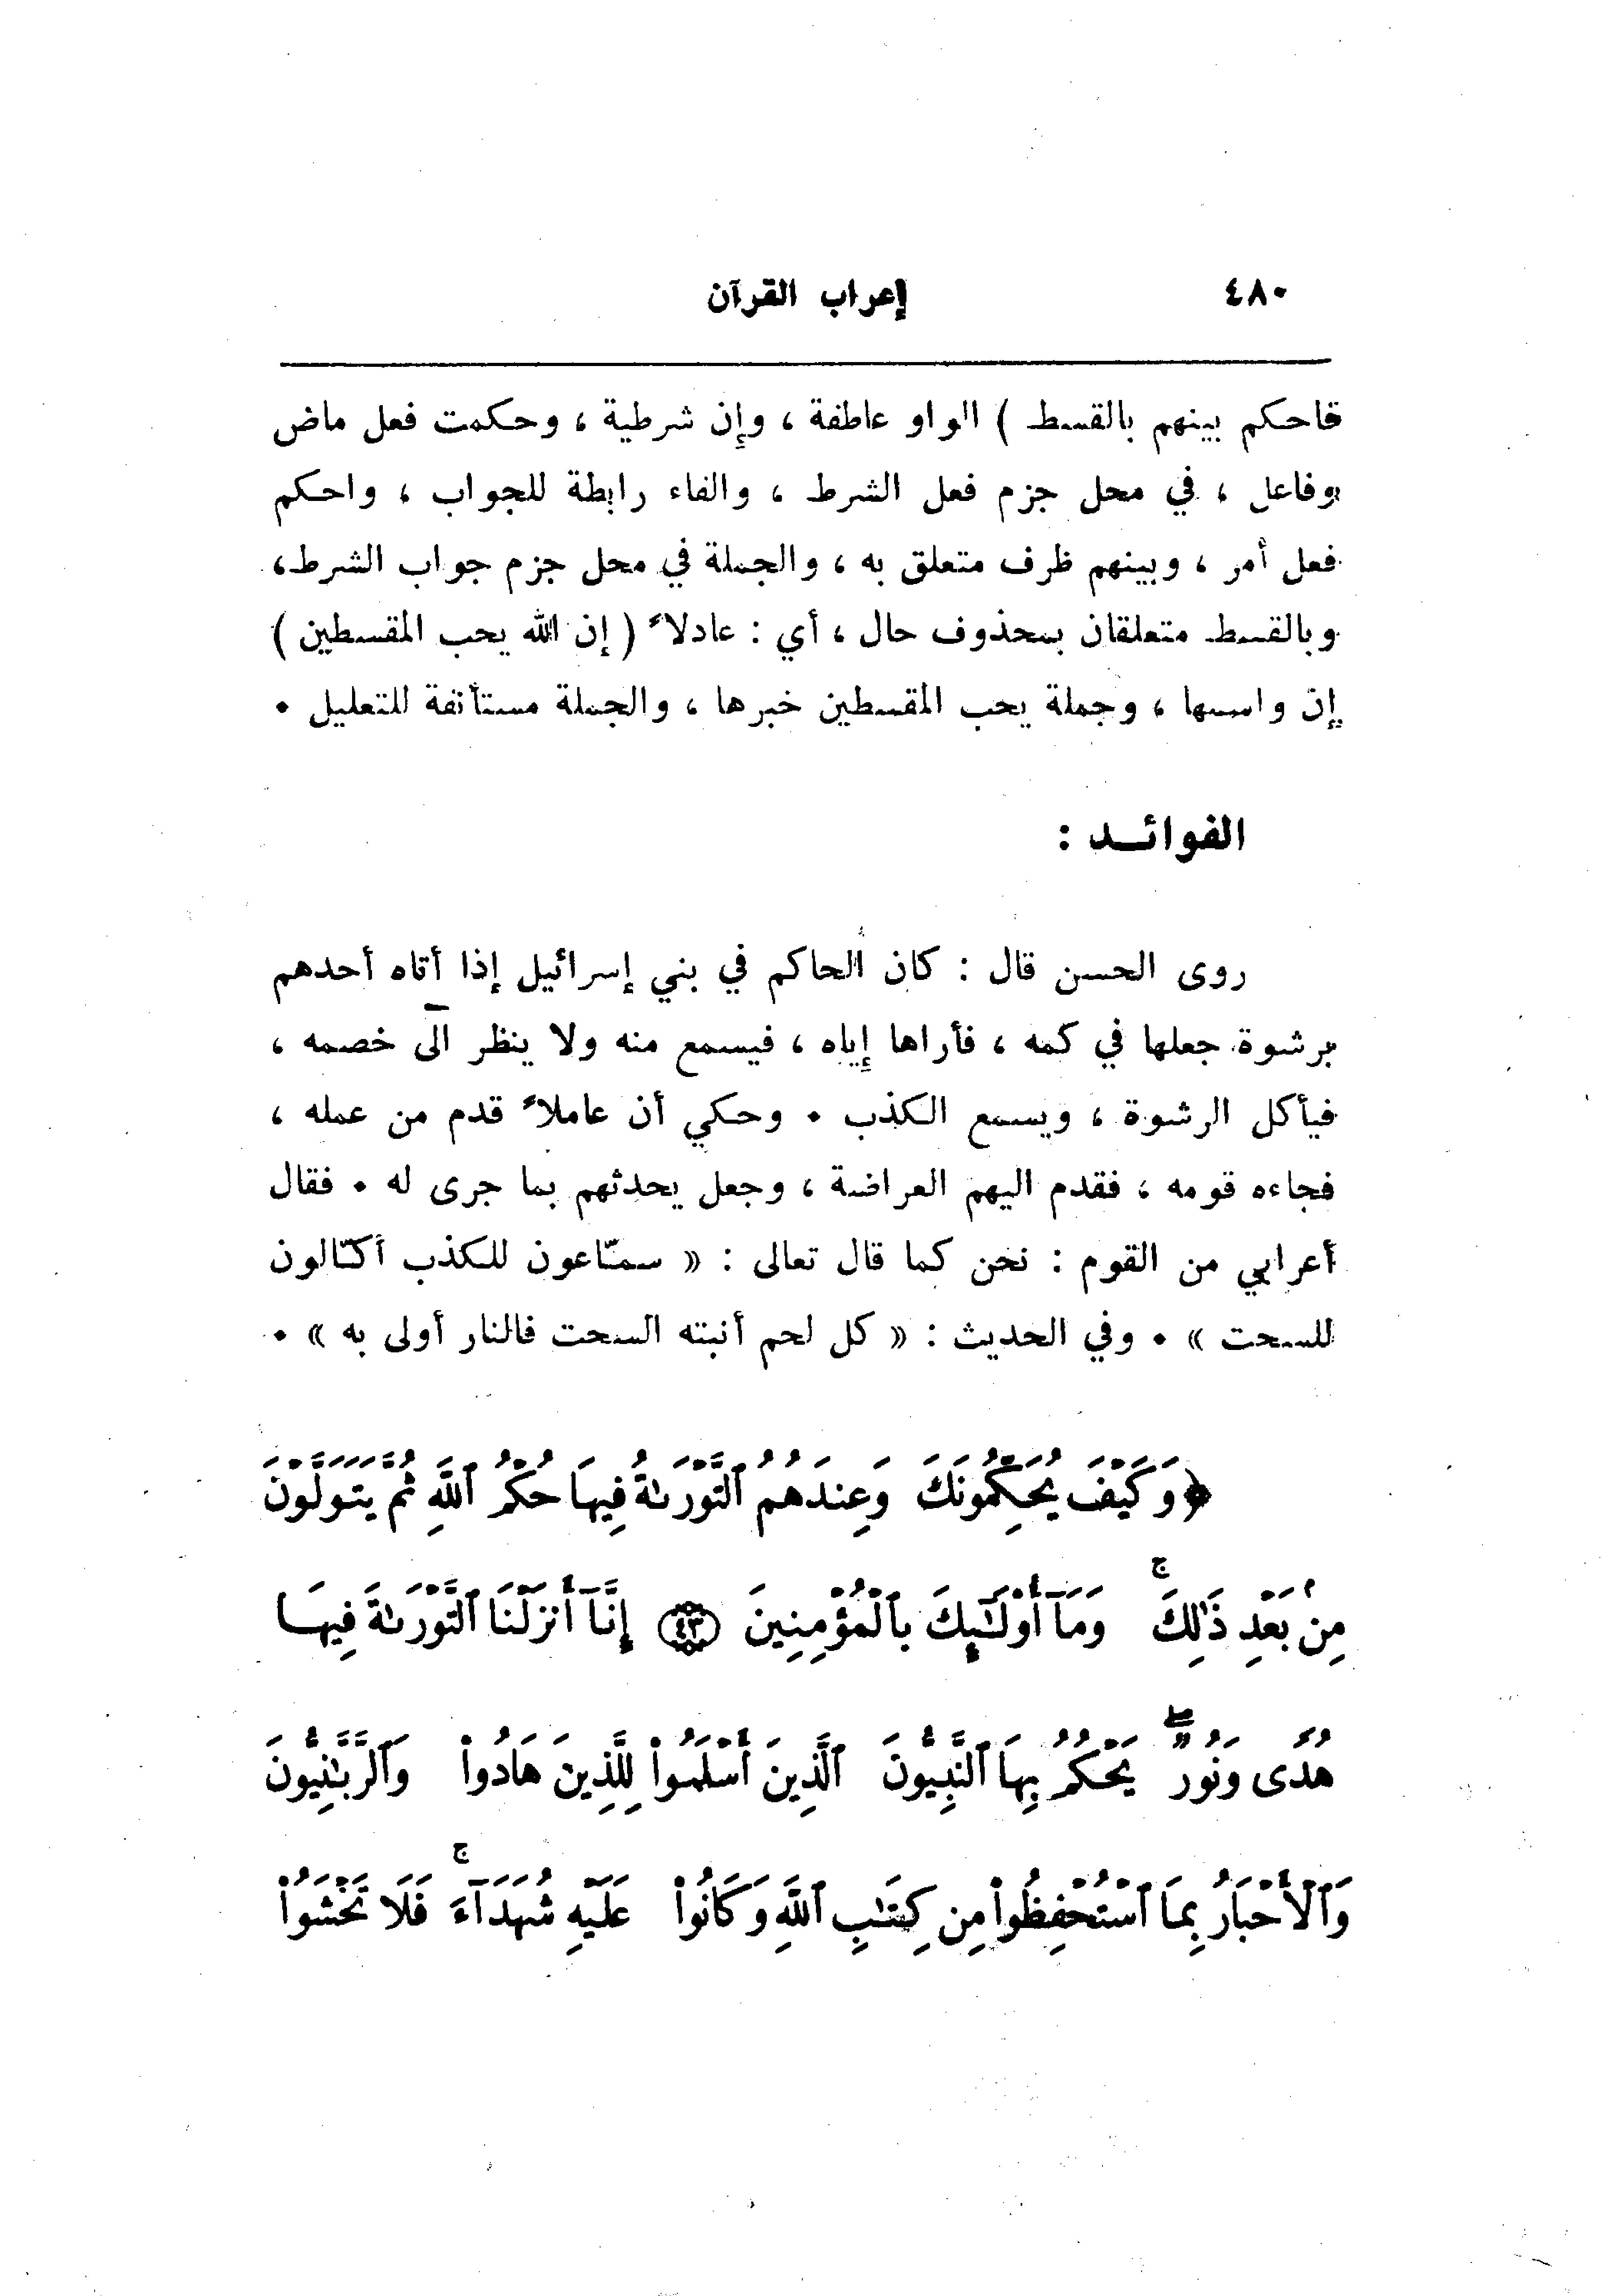 ٤٨٠ إعراب القرآن
فاحكم بينهم بالقسط ) الواو عاطفة ، وإن شرطية ، وحكمت فعل ماض
وفاعل ، في محل جزم فعل الشرط ، والفاء رابطة للجواب ، واحكم
فعل أمر ، وبينهم ظرف متعلق به ، والجملة في محل جزم جواب الشرط،
وبالقسط متعلقان بمحذوف حال ، أي : عادلاً ( إن الله يحب المقسطين )
إن واسمها ، وجملة يحب المقسطين خبرها ، والجملة مستأنفة للتعليل .
الفوائـد :
روى الحسن قال : كان الحاكم في بني إسرائيل إذا أتاه أحدهم
برشوة جعلها في كمه ، فأراها إياه ، فيسمع منه ولا ينظر الى خصمه ،
فيأكل الرشوة ، ويسمع الكذب . وحكي أن عاملاً قدم من عمله ،
فجاءه قومه ، فقدم اليهم العراضة ، وجعل يحدثهم بما جرى له . فقال
أعرابي من القوم : نحن كما قال تعالى : « سمّاعون للكذب أكّالون
للسحت » . وفي الحديث : « كل لحم أنبته السحت فالنار أولى به » .
﴿وَكَيْفَ يُحَكِّمُونَكَ وَعِندَهُمُ ٱلتَّوْرَىٰةُ فِيهَا حُكْمُ ٱللَّهِ ثُمَّ يَتَوَلَّوْنَ
مِنۢ بَعْدِ ذَٰلِكَ ۚ وَمَآ أُوْلَـٰٓئِكَ بِٱلْمُؤْمِنِينَ ﴿٤٣﴾ إِنَّآ أَنزَلْنَا ٱلتَّوْرَىٰةَ فِيهَا
هُدًى وَنُورٌ ۖ يَحْكُمُ بِهَا ٱلنَّبِيُّونَ ٱلَّذِينَ أَسْلَمُواْ لِلَّذِينَ هَادُواْ وَٱلرَّبَّـٰنِيُّونَ
وَٱلْأَحْبَارُ بِمَا ٱسْتُحْفِظُواْ مِن كِتَـٰبِ ٱللَّهِ وَكَانُواْ عَلَيْهِ شُهَدَآءَ ۚ فَلَا تَخْشَوُاْ